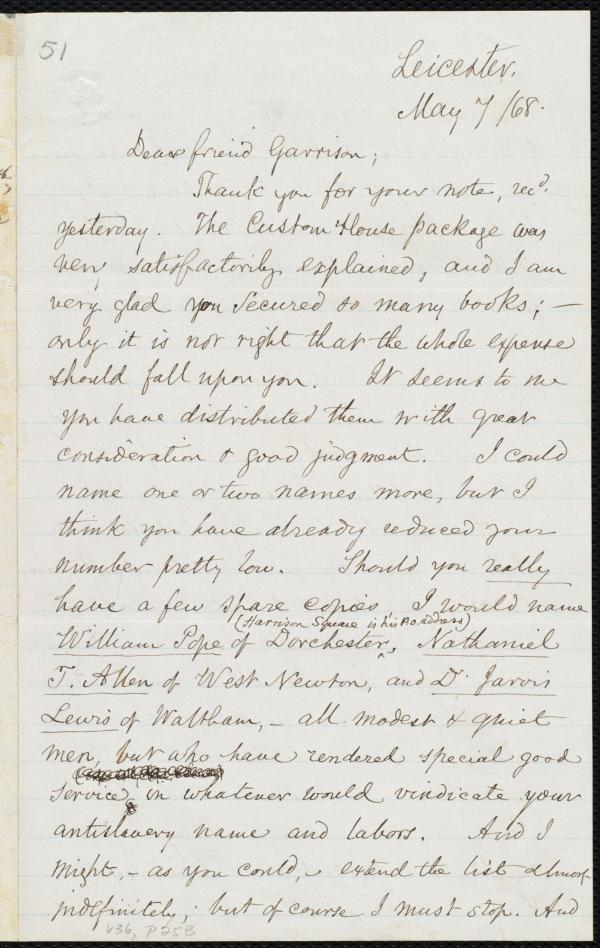 51
Leicester.
May 7/68.
Dear friend Garrison;
Thank you for your note, recd.
yesterday. The Custom House package was
very satisfactorily explained, and I am
very glad you secured so many books; —
only it is not right that the whole expense
should fall upon you. It seems to me
you have distributed them with great
consideration & good judgment. I could
name one or two names more, but I
think you have already reduced your
number pretty low. Should you really
have a few spare copies, I would name
(Harrison Square is his P.O. address)
William Pope of Dorchester, Nathaniel
T. Allen of West Newton, and Dr. Jarvis
Lewis of Waltham, – all modest & quiet
men, but who have rendered special good
service in whatever would vindicate your
antislavery name and labors. And I
might, – as you could, – extend the list almost
indefinitely; but of course I must stop. And
V36, P25B